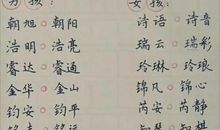 男孩： 女孩：
朝旭 朝阳 诗语 诗音
浩明 浩亮 瑞云 瑞彩
睿达 睿通 玲琳 玲琅
金华 金山 锦凡 锦心
钧安 钧平 芮安 芮静